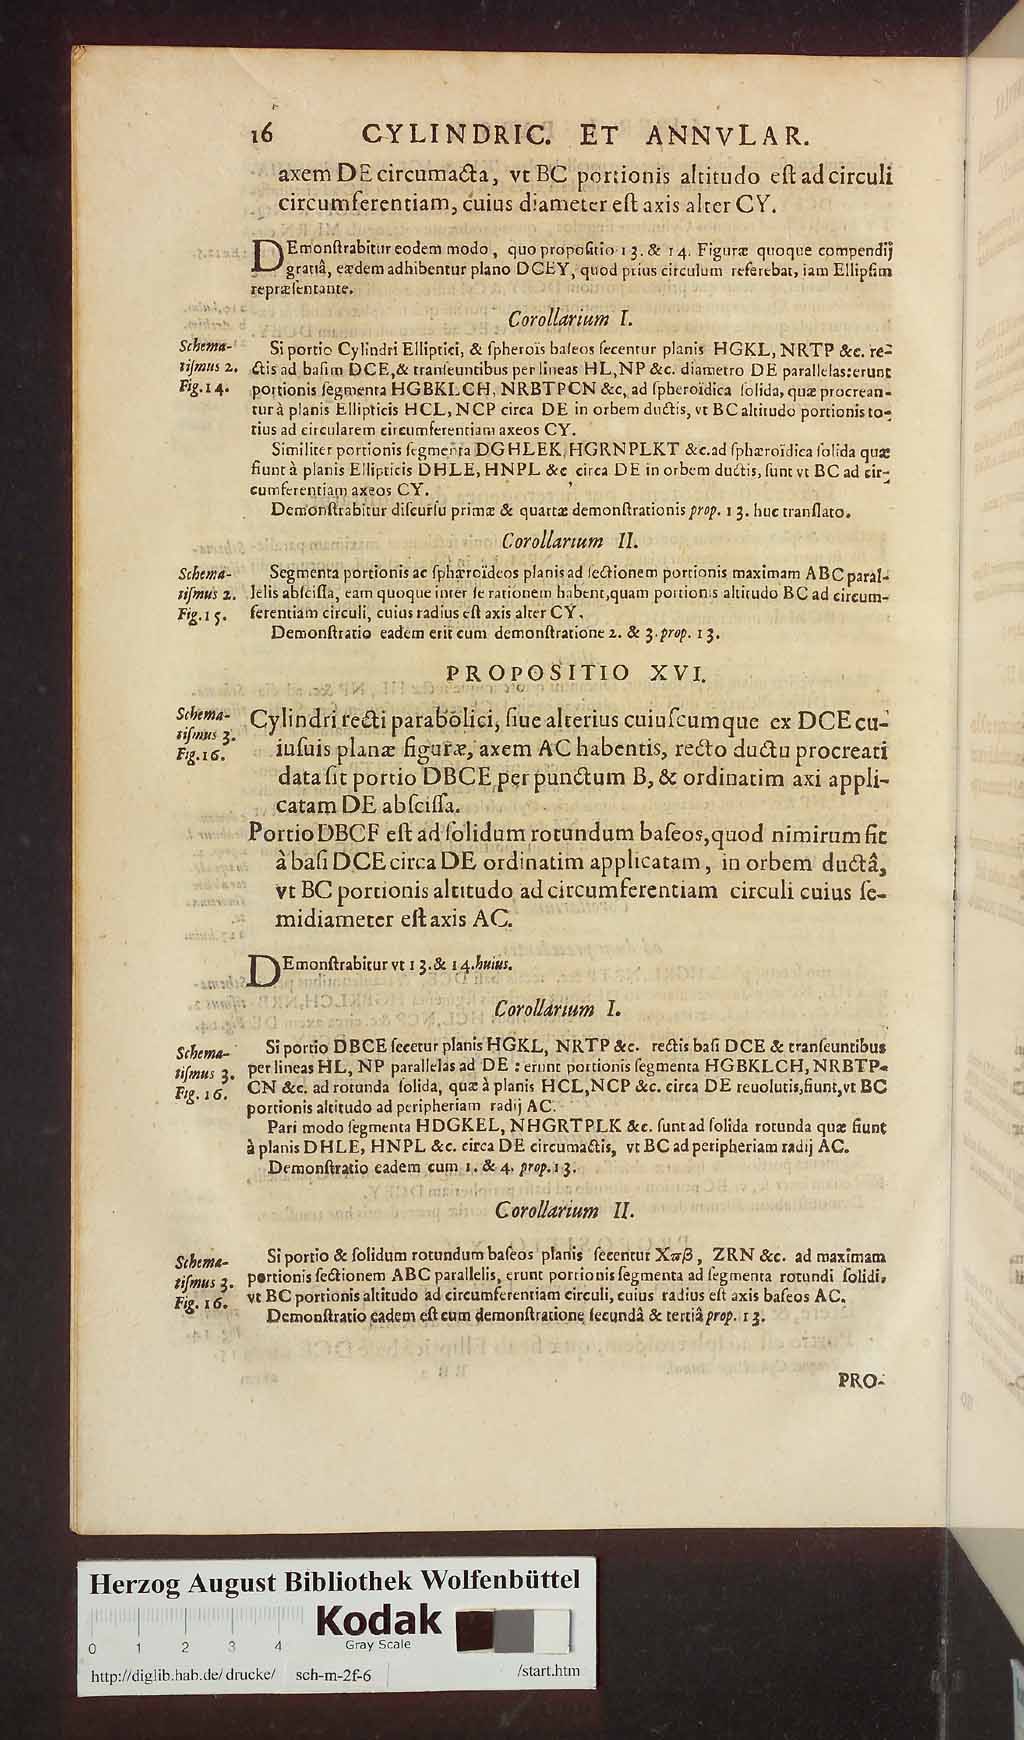 16 CYLINDRIC. ET ANNVLAR.
axem DE circumacta, vt BC portionis altitudo eſt ad circuli
circumferentiam, cuius diameter eſt axis alter CY.
DEmonſtrabitur eodem modo, quo propoſitio 13. & 14. Figuræ quoque compendij
gratiâ, eædem adhibentur plano DCEY, quod prius circulum referebat, iam Ellipſim
repræſentante.
Corollarium I.
Schema-
tiſmus 2.
Fig. 14.
Si portio Cylindri Elliptici, & ſpheroïs baſeos ſecentur planis HGKL, NRTP &c. re-
ctis ad baſim DCE, & tranſeuntibus per lineas HL, NP &c. diametro DE parallelas: erunt
portionis ſegmenta HGBKLCH, NRBTPCN &c, ad ſpheroïdica ſolida, quæ procrean-
tur à planis Ellipticis HCL, NCP circa DE in orbem ductis, vt BC altitudo portionis to-
tius ad circularem circumferentiam axeos CY.
Similiter portionis ſegmenta DGHLEK, HGRNPLKT &c. ad ſphæroïdica ſolida quæ
fiunt à planis Ellipticis DHLE, HNPL &c circa DE in orbem ductis, ſunt vt BC ad cir-
cumferentiam axeos CY.
Demonſtrabitur diſcurſu primæ & quartæ demonſtrationis prop. 13. huc tranſlato.
Corollarium II.
Schema-
tiſmus 2.
Fig. 15.
Segmenta portionis ac ſphæroïdeos planis ad ſectionem portionis maximam ABC paral-
lelis abſciſſa, eam quoque inter ſe rationem habent, quam portionis altitudo BC ad circum-
ferentiam circuli, cuius radius eſt axis alter CY.
Demonſtratio eadem erit cum demonſtratione 2. & 3. prop. 13.
PROPOSITIO XVI.
Schema-
tiſmus 3.
Fig. 16.
Cylindri recti parabolici, ſiue alterius cuiuſcumque ex DCE cu-
iuſuis planæ figuræ, axem AC habentis, recto ductu procreati
data ſit portio DBCE per punctum B, & ordinatim axi appli-
catam DE abſciſſa.
Portio DBCF eſt ad ſolidum rotundum baſeos, quod nimirum fit
à baſi DCE circa DE ordinatim applicatam, in orbem ductâ,
vt BC portionis altitudo ad circumferentiam circuli cuius ſe-
midiameter eſt axis AC.
DEmonſtrabitur vt 13. & 14. huius.
Corollarium I.
Schema-
tiſmus 3.
Fig. 16.
Si portio DBCE ſecetur planis HGKL, NRTP &c. rectis baſi DCE & tranſeuntibus
per lineas HL, NP parallelas ad DE: erunt portionis ſegmenta HGBKLCH, NRBTP-
CN &c. ad rotunda ſolida, quæ à planis HCL, NCP &c. circa DE reuolutis, fiunt, vt BC
portionis altitudo ad peripheriam radij AC.
Pari modo ſegmenta HDGKEL, NHGRTPLK &c. ſunt ad ſolida rotunda quæ fiunt
à planis DHLE, HNPL &c. circa DE circumactis, vt BC ad peripheriam radij AC.
Demonſtratio eadem cum 1. & 4. prop. 13.
Corollarium II.
Schema-
tiſmus 3.
Fig. 16.
Si portio & ſolidum rotundum baſeos planis ſecentur Xπβ, ZRN &c. ad maximam
portionis ſectionem ABC parallelis, erunt portionis ſegmenta ad ſegmenta rotundi ſolidi,
vt BC portionis altitudo ad circumferentiam circuli, cuius radius eſt axis baſeos AC.
Demonſtratio eadem eſt cum demonſtratione ſecundâ & tertiâ prop. 13.
PRO-
Herzog August Bibliothek Wolfenbüttel
Kodak
Gray Scale
0 1 2 3 4
http://diglib.hab.de/drucke/ sch-m-2f-6 /start.htm